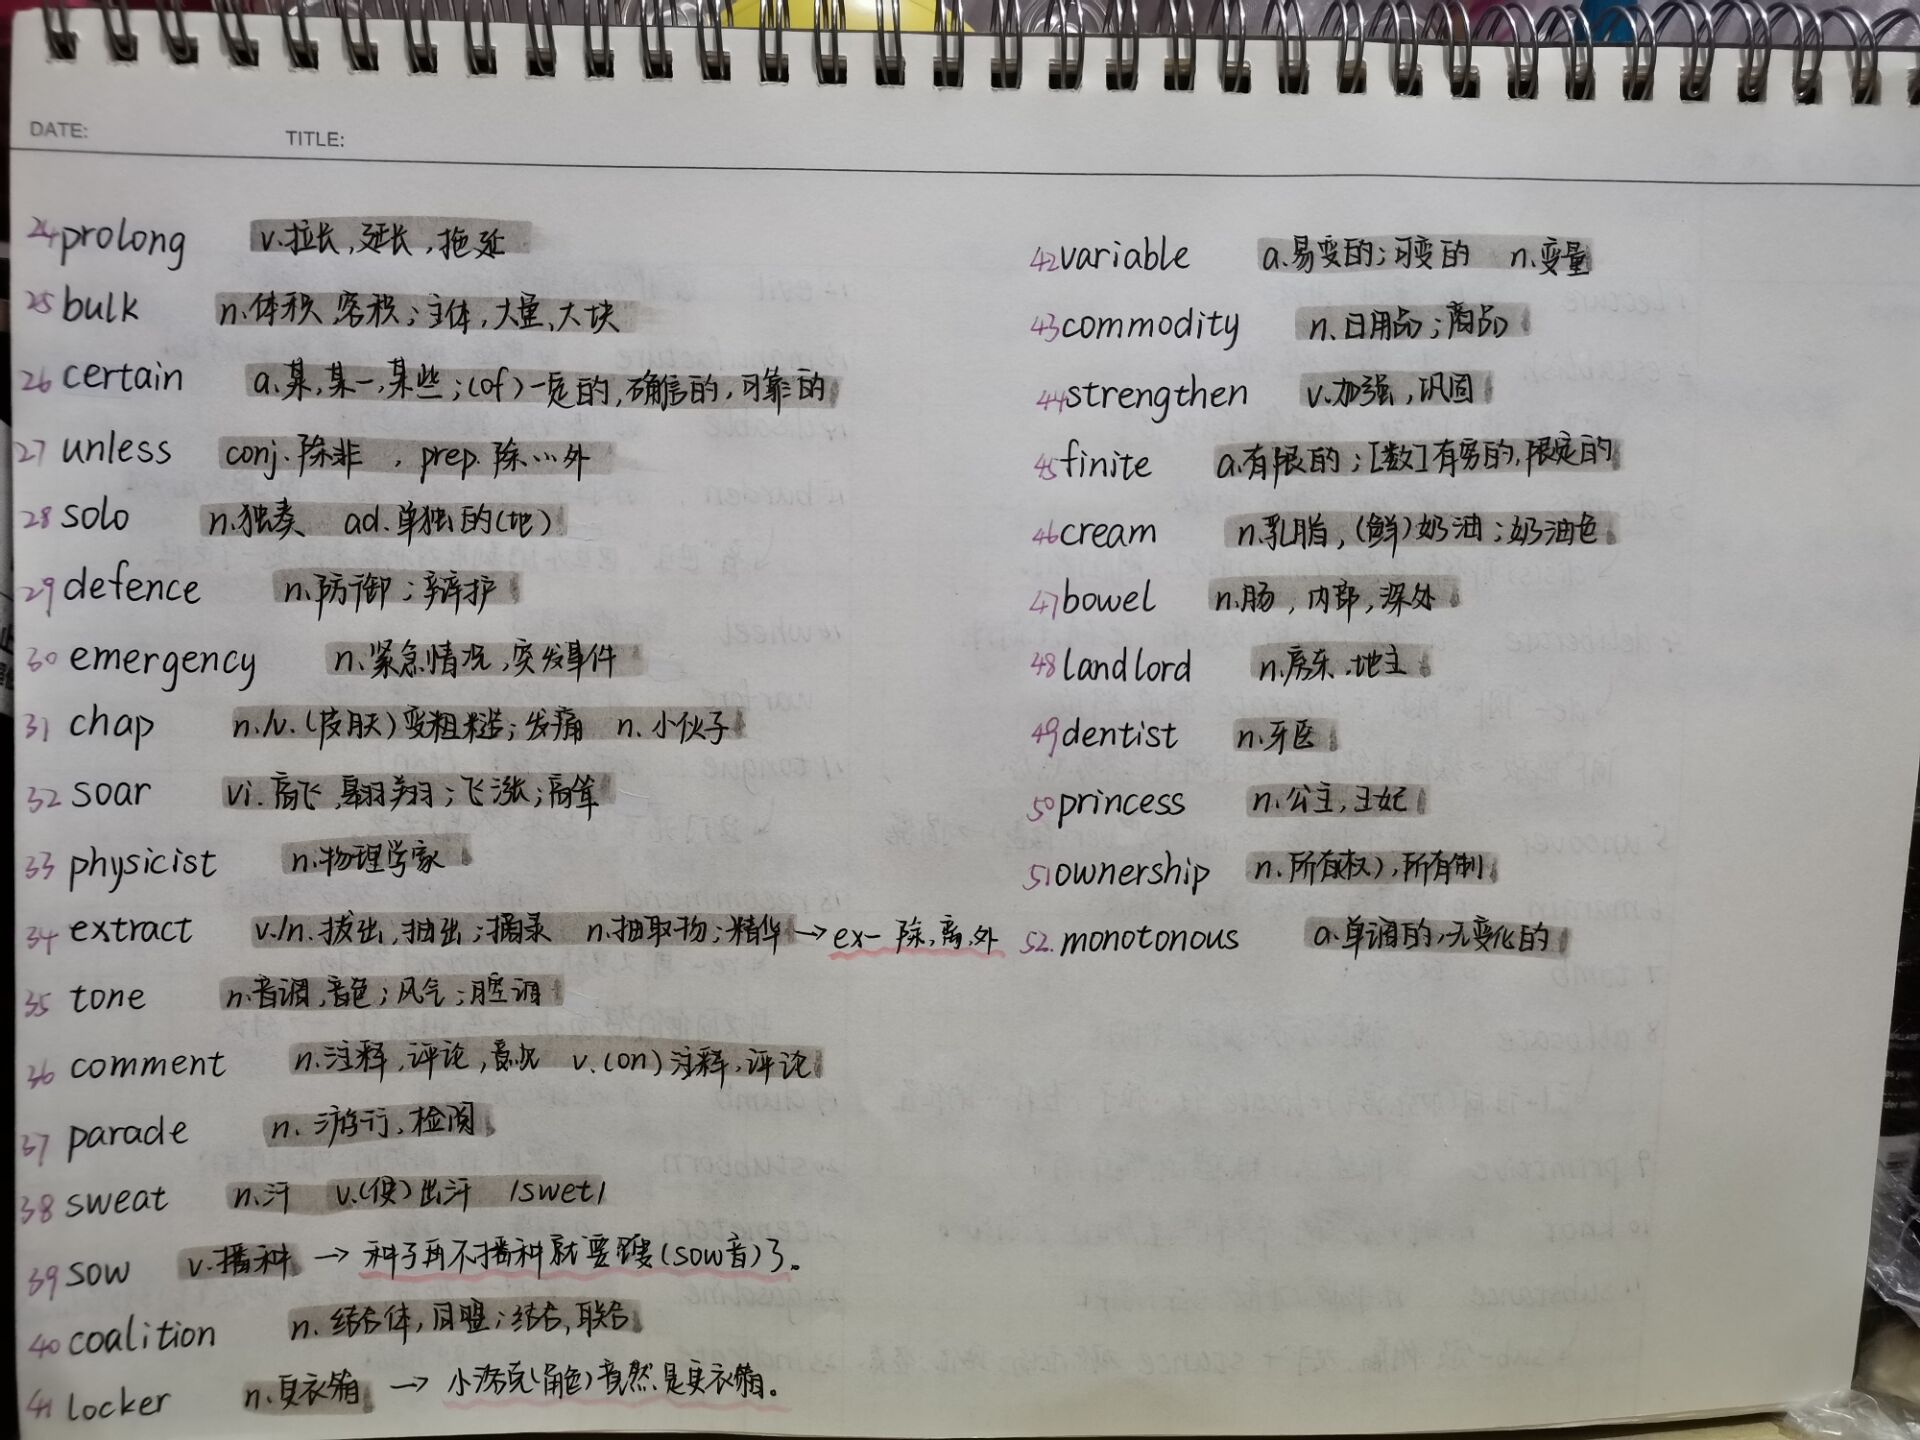 DATE:
TITLE:
24 prolong v.拉长,延长,拖延
25 bulk n.体积,容积;主体,大量、大块
26 certain a.某,某一,某些;(of)一定的,确信的,可靠的
27 unless conj.除非,prep.除…外
28 solo n.独奏 ad.单独的(地)
29 defence n.防御;辩护
30 emergency n.紧急情况,突发事件
31 chap n./v.(皮肤)变粗糙;发痛 n.小伙子
32 soar vi.高飞,翱翔;飞涨;高耸
33 physicist n.物理学家
34 extract v./n.拔出,抽出;摘录 n.抽取物;精华→ex- 除,离,外
35 tone n.音调,音色;风气;腔调
36 comment n.注释,评论,意见 v.(on)注释,评论
37 parade n.游行,检阅
38 sweat n.汗 v.(使)出汗 /swet/
39 sow v.播种→种子再不播种就要馊(sow音)了。
40 coalition n.结合体,同盟;结合,联合
41 locker n.更衣箱→小洛克(角色)竟然是更衣箱。
42 variable a.易变的;可变的 n.变量
43 commodity n.日用品;商品
44 strengthen v.加强,巩固
45 finite a.有限的;[数]有穷的,限定的
46 cream n.乳脂,(鲜)奶油;奶油色
47 bowel n.肠,内部,深处
48 landlord n.房东,地主
49 dentist n.牙医
50 princess n.公主,王妃
51 ownership n.所有权),所有制
52. monotonous a.单调的,无变化的